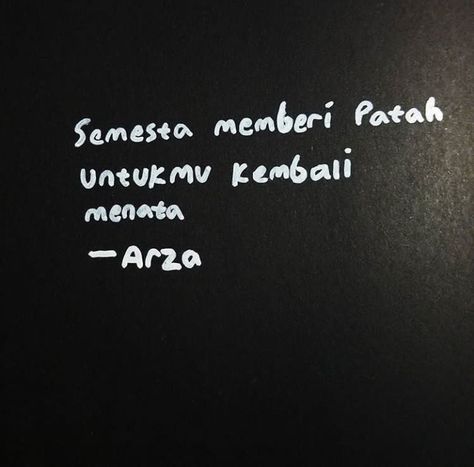 Semesta memberi Patah
Untukmu Kembali
menata
– Arza